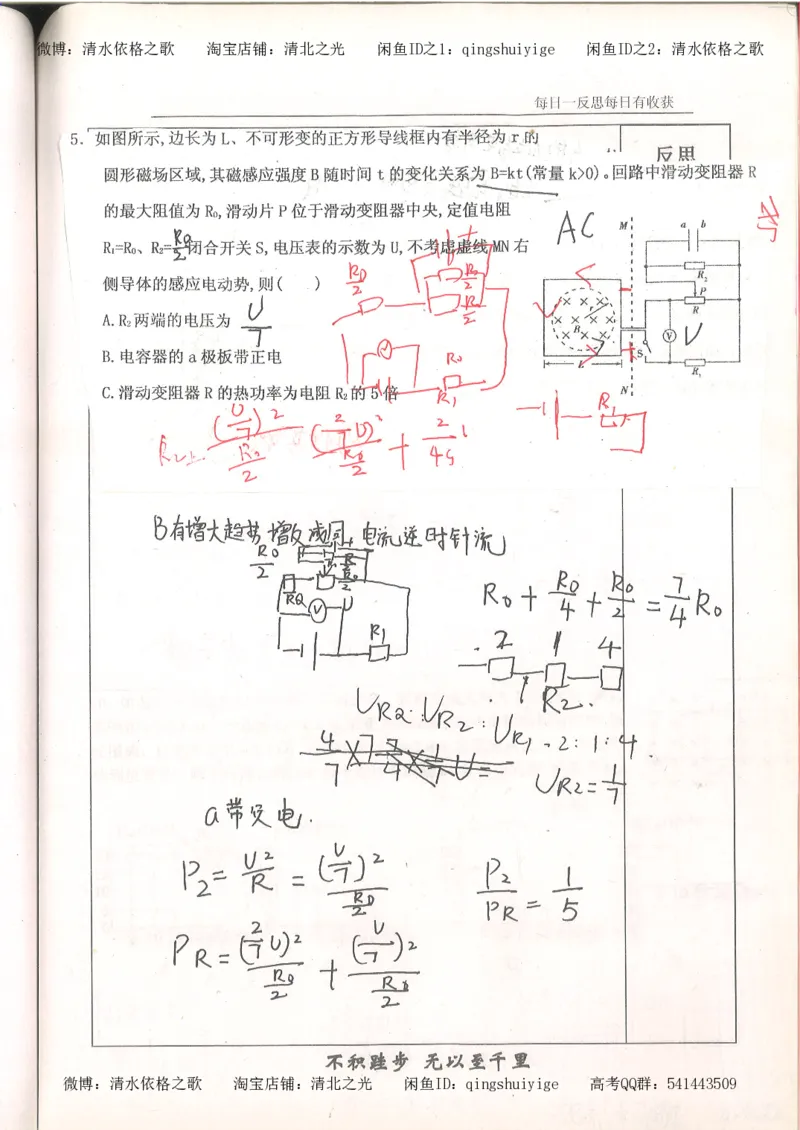 微博：清水依格之歌 淘宝店铺：清北之光 闲鱼ID之1：qingshuiyige 闲鱼ID之2：清水依格之歌
每日一反思每日有收获
反思
5. 如图所示,边长为 L、不可形变的正方形导线框内有半径为 r 的
圆形磁场区域,其磁感应强度 B 随时间 t 的变化关系为 B=kt(常量 k>0)。回路中滑动变阻器 R
的最大阻值为 R₀,滑动片 P 位于滑动变阻器中央,定值电阻
R₁=R₀、R₂=R₀/2 闭合开关 S,电压表的示数为 U,不考虑虚线 MN 右
侧导体的感应电动势,则( )
A.R₂两端的电压为 U/7
B.电容器的 a 极板带正电
C.滑动变阻器 R 的热功率为电阻 R₂的 5 倍
AC
M
a b
R₂
P
R
V U
S
R₁
N
B
r
L
R₀/2
R₀/2
R₀/2
V
R₀
R₁
R₁
(U/7)²/(R₀/2)
(2/7 U)²/(R₀/2) +
B有增大趋势 增反减同 电流逆时针流
R₀/2
V U
R₁
R₀ + R₀/4 + R₀/2 = 7/4 R₀
2 1 4
R₂
U_R左:U_R₂:U_R₁ = 2:1:4
U_R₂ = 1/7
a带负电.
P₂ = U²/R = (U/7)²/(R₀/2)
P₂/P_R = 1/5
P_R = (2/7 U)²/(R₀/2) + (U/7)²/(R₀/2)
不积跬步 无以至千里
微博：清水依格之歌 淘宝店铺：清北之光 闲鱼ID：qingshuiyige 高考QQ群：541443509